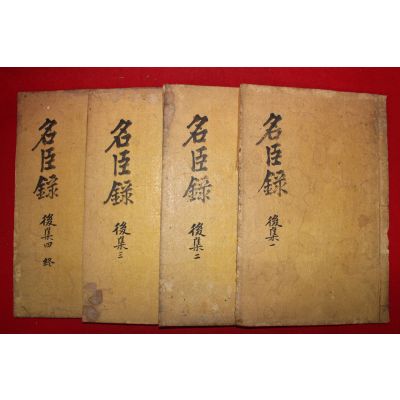 名臣錄
後集一
名臣錄
後集二
名臣錄
後集三
名臣錄
後集四 終